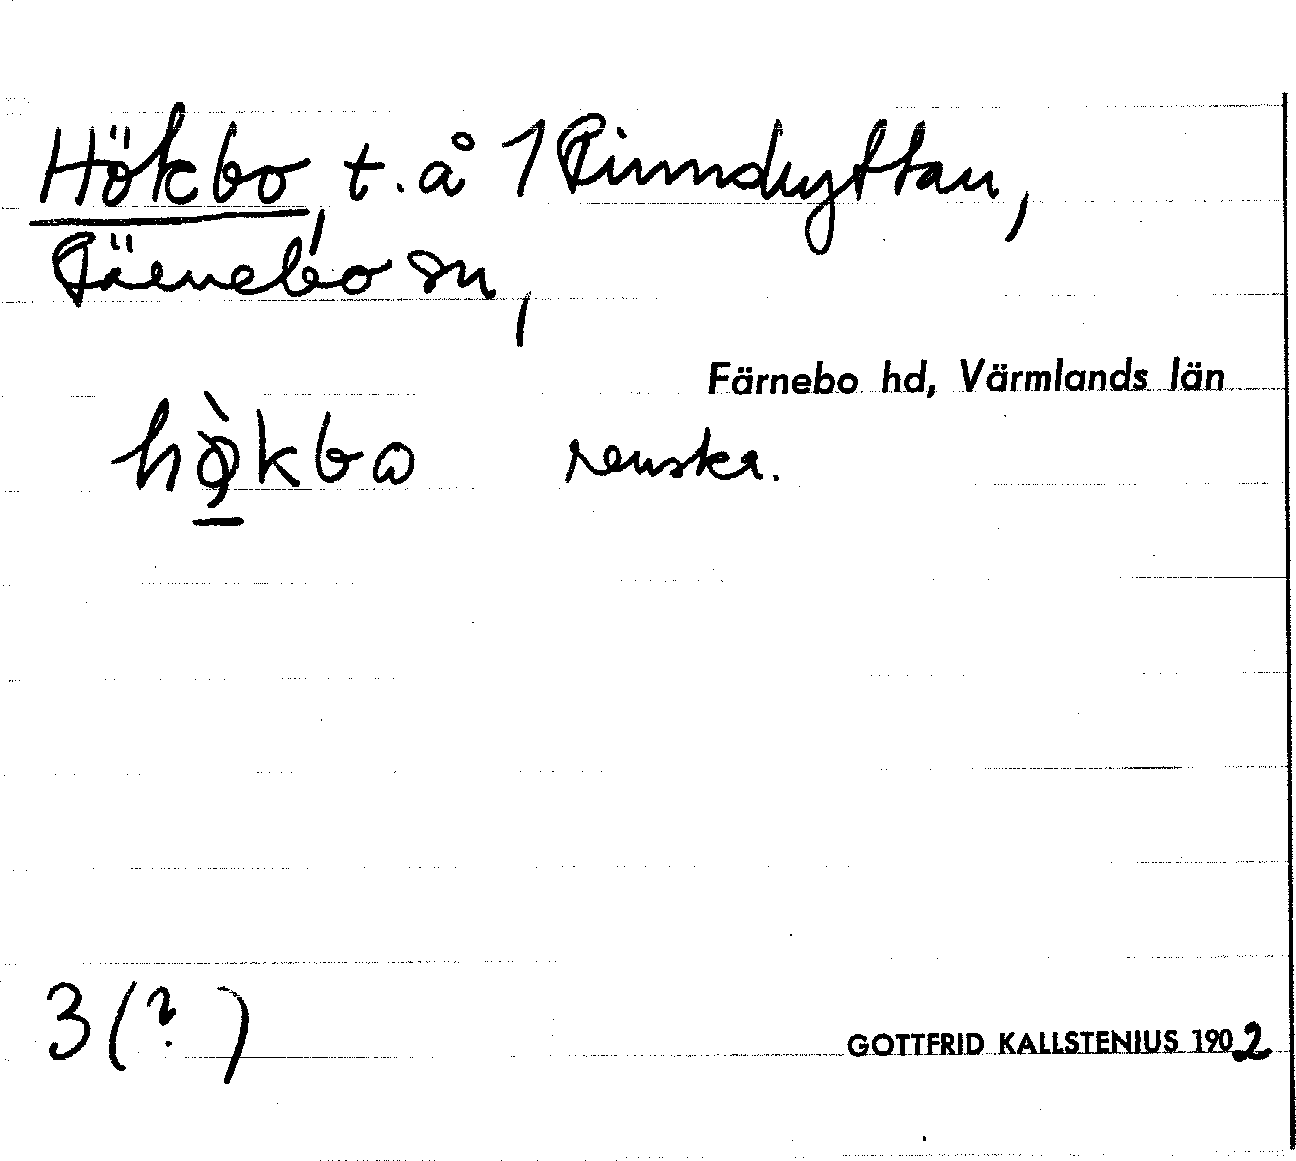 Hökbo, t. å 1 Finnshyttan,
Färnebo sn,
Färnebo hd, Värmlands län
hø̀kbɷ renskr.
3 (?)
GOTTFRID KALLSTENIUS 1902